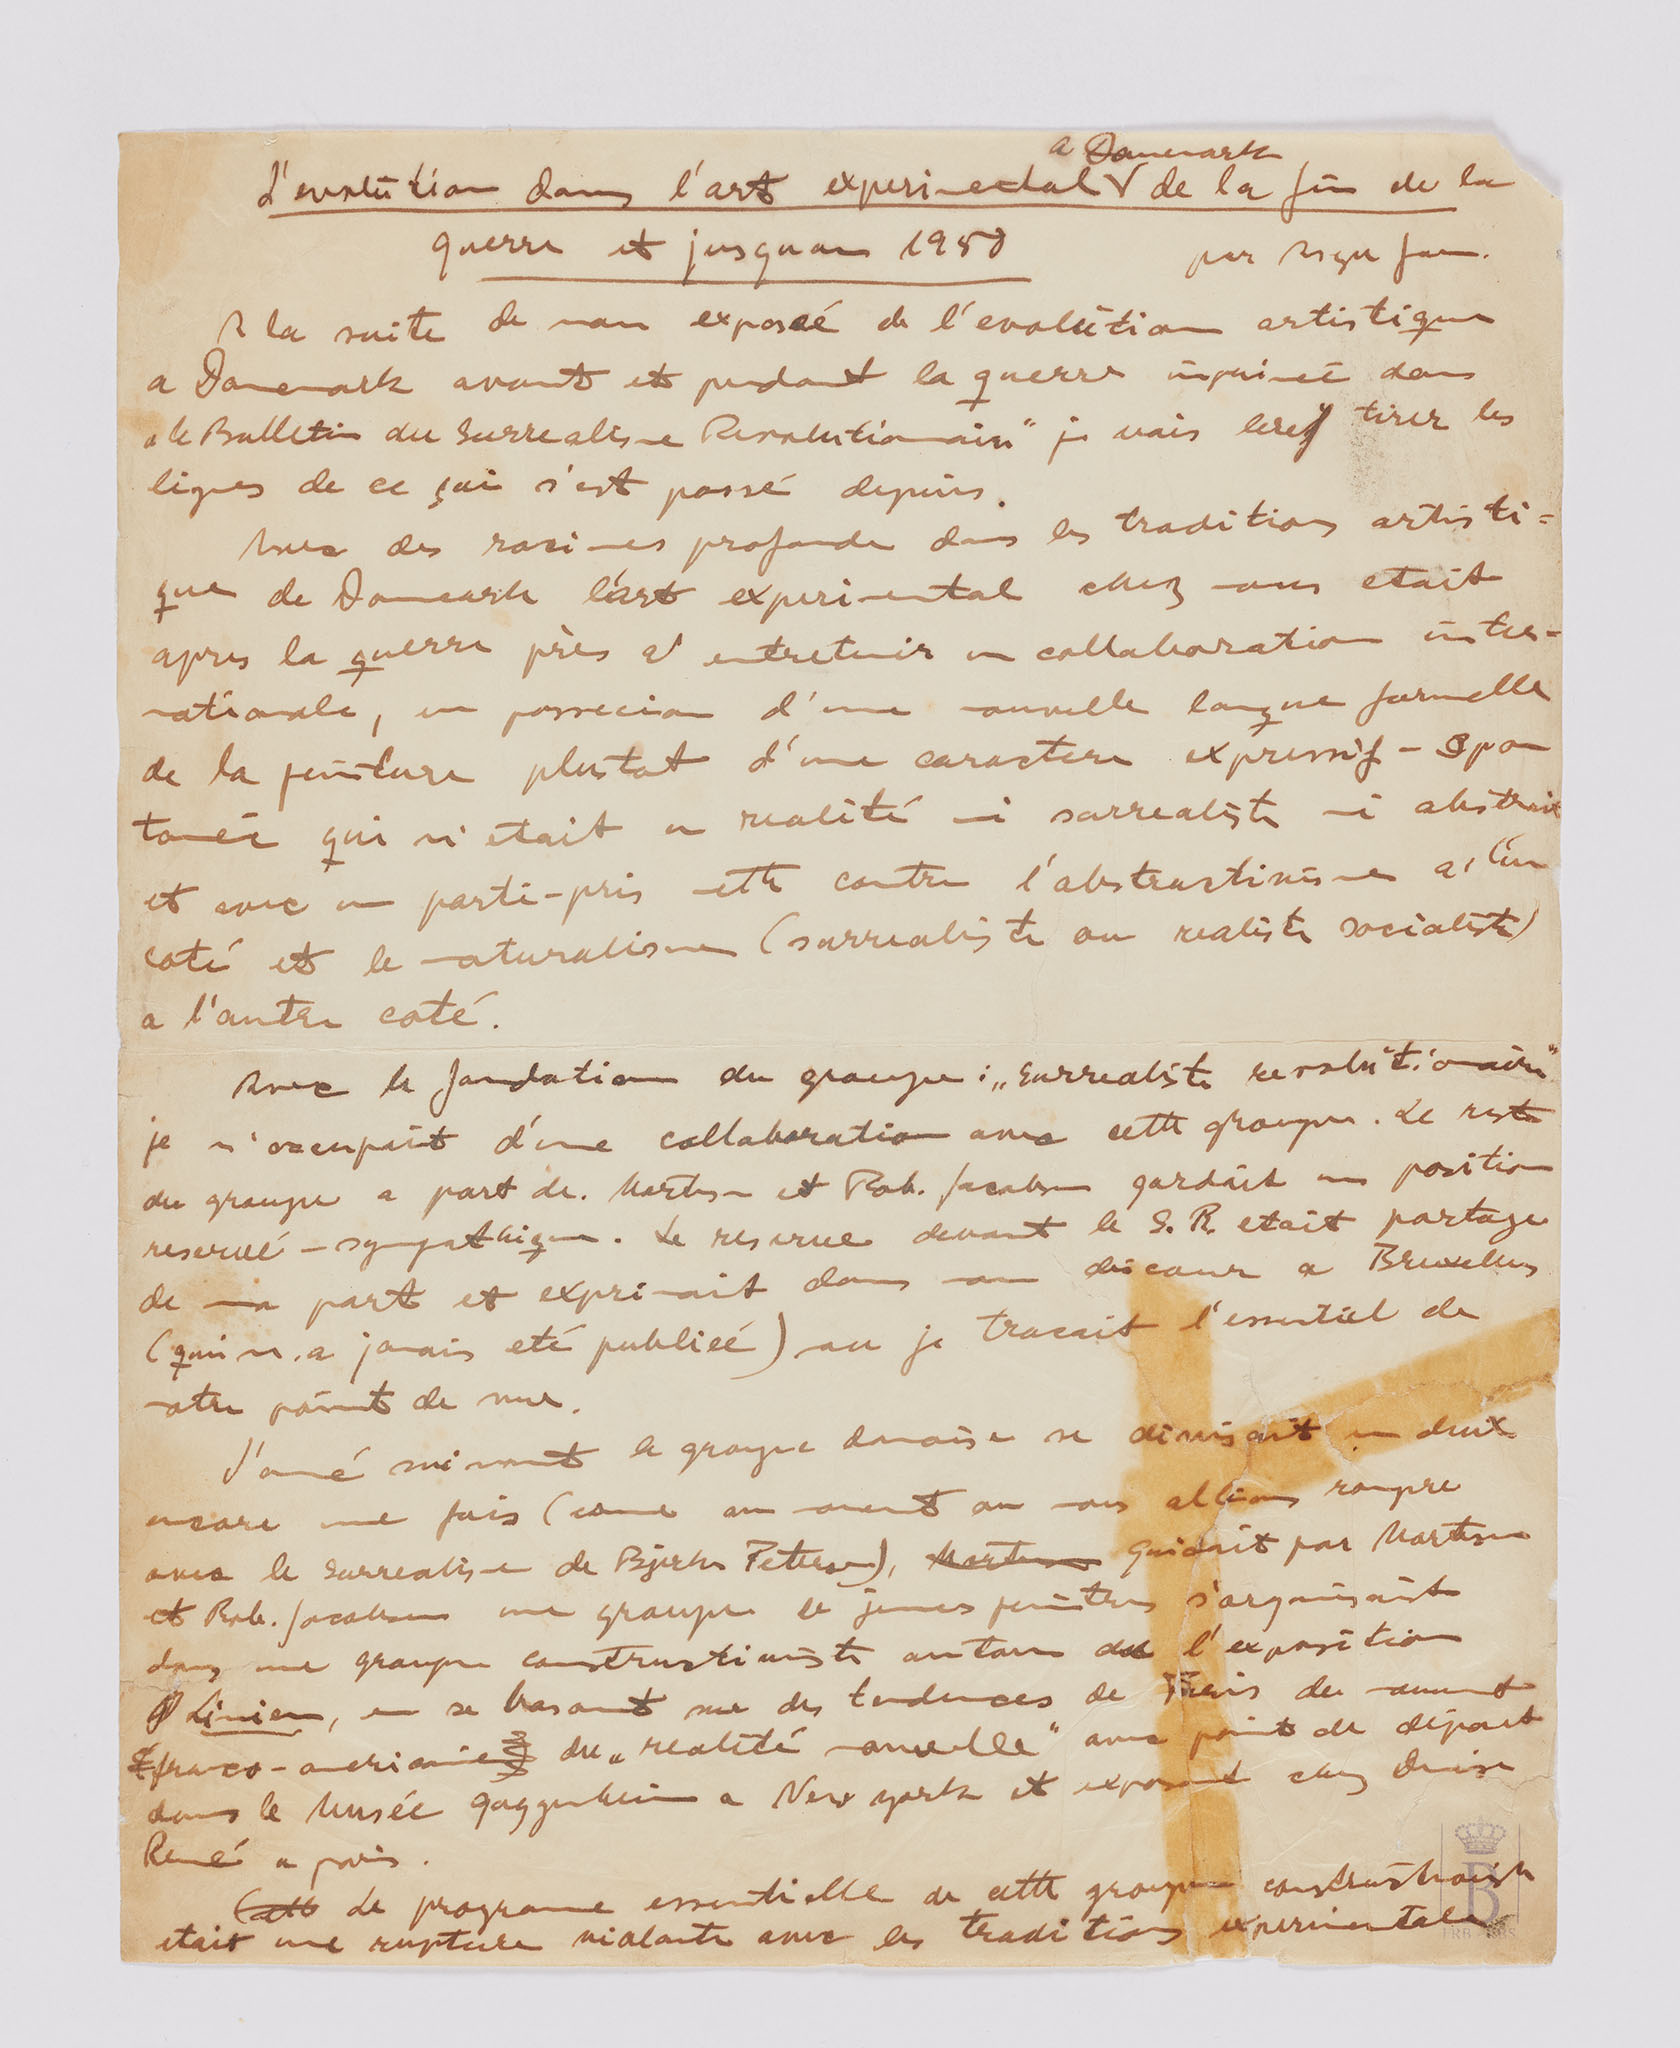 a Danemark
L'evolution dans l'art experimental V de la fin de la
guerre et jusquau 1950 par Asger Jorn.
A la suite de mon exposéé de l'evolution artistique
a Danemark avant et pendant la guerre imprimeé dans
„le Bulletin du Surrealisme Revolutionaire" je vais tirer les
lignes de ce qui s'est passé depuis.
Avec des racines profonde dans les traditions artisti=
que de Danemark l'art experimental chez nous etait
apres la guerre près a' entretenir un collaboration inter-
nationale, en possecion d'une nouvelle langue formelle
de la peinture plustot d'une caractere expressif - Spon
taneé qui n'etait en realité ni surrealiste ni abstrait
et avec un parti-pris nette contre l'abstractivisme a' l'un
coté et le naturalisme (surrealiste ou realiste socialiste)
a l'autre coté.
Avec le fondation du groupe: „Surrealiste revolutionaire"
je m'occupait d'une collaboration avec cette groupe. Le reste
du groupe a part de. Mortensen et Rob. Jacobsen gardait un position
reservé - sympathique. Le reserve devant le S. R. etait partage
de ma part et exprimait dans mon discour a Bruxelles
(qui n.a jamais eté publieé) ou je tracait l'essentiel de
notre point de vue.
L'anné suivant le groupe danoise se divisait en deux
encore une fois (come au moment ou nous allions rompre
avec le surrealisme de Bjerke Petersen), Mortensen guidait par Mortensen
et Rob. Jacobsen une groupe de jeunes peintres s'organisait
dans une groupe constructiviste autour de l'exposition
Linien, en se basant sur des tendences de Paris du mouvment
franco-americaine du „realité nouvelle" avec point de départ
dans le Musée Gaggenheim a New york et exposant chez Denise
René a paris.
Cette Le programe essentielle de cette groupe constructiviste
etait une rupture violante avec les traditions experimentale